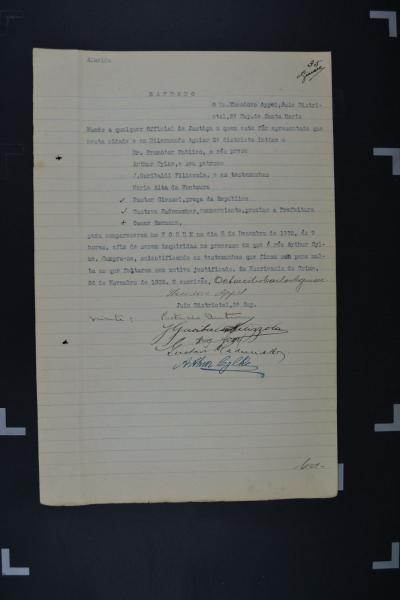 Almeida
35
MANDADO
O Dr. Theodoro Appel, Juiz Distri-
ctal, 2ª Sup. de Santa Maria
Mando a qualquer Official de Justiça a quem este fôr apresentado que
nesta cidade e em Dilermando Aguiar 2º districto intime o
Dr. Promotor Publico, o réu preso
Arthur Cylke, e seu patrono
J. Garibaldi Filizzola, e as testemunhas
Maria Alta da Ventuara
Pastor Giessel, praça da Republica
Gustavo Radunz, commerciante, proximo a Prefeitura
Oscar Hermann,
para comparecerem no FORUM no dia 6 de Dezembro de 1932, ás 9
horas, afim de serem inquiridas no processo em que é réu Arthur Cyl-
ke. Cumpra-se, scientificando as testemunhas que ficam sob pena mul-
ta no que faltarem sem motivo justificado. Na Escrivania do Crime,
26 de Novembro de 1932. O escrivão,
Theodoro Appel
Juiz Districtal, 2ª Sup.
J Garibaldi Filizzola
Arthur Cylke